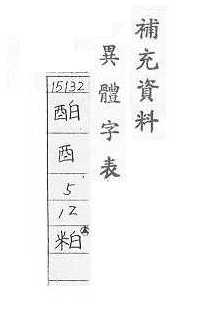 補充資料
異體字表
15132
酯
酉
5
12
粕